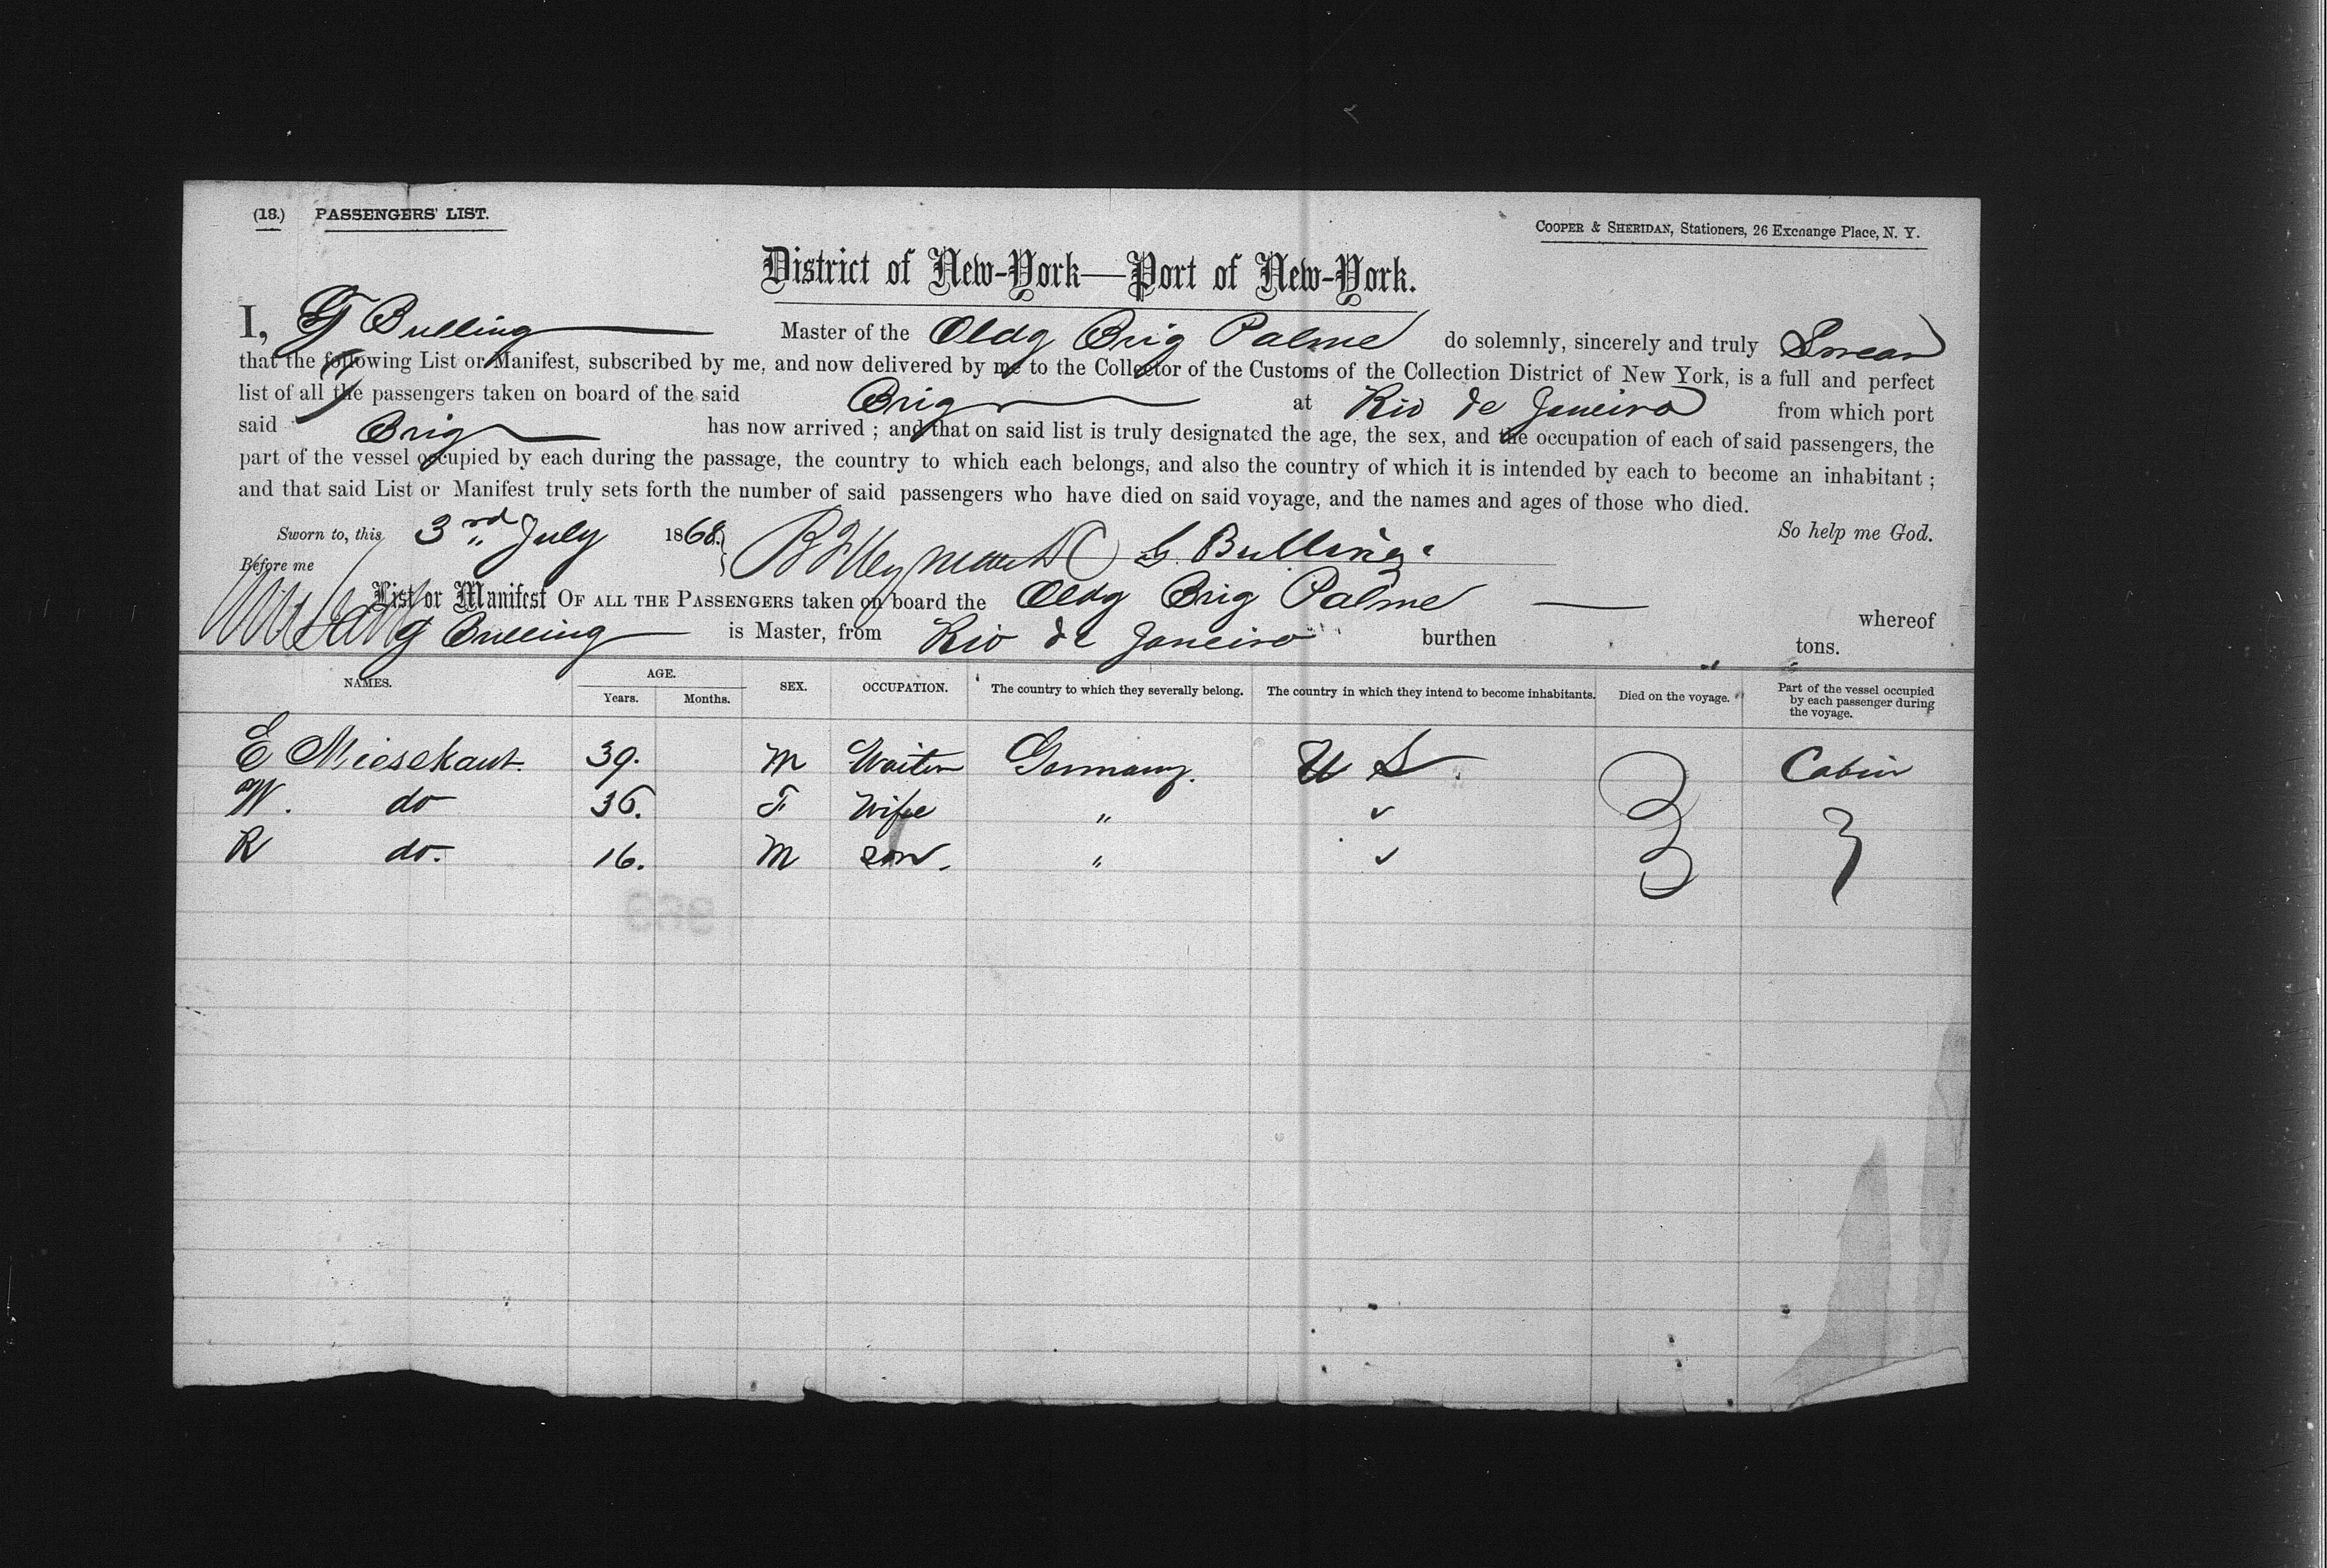 (18.) PASSENGERS' LIST.
COOPER & SHERIDAN, Stationers, 26 Exchange Place, N. Y.
District of New-York—Port of New-York.
I, G Bulling Master of the Oldg Brig Palme do solemnly, sincerely and truly Swear
that the following List or Manifest, subscribed by me, and now delivered by me to the Collector of the Customs of the Collection District of New York, is a full and perfect
list of all the passengers taken on board of the said Brig at Rio de Janeiro from which port
said Brig has now arrived ; and that on said list is truly designated the age, the sex, and the occupation of each of said passengers, the
part of the vessel occupied by each during the passage, the country to which each belongs, and also the country of which it is intended by each to become an inhabitant ;
and that said List or Manifest truly sets forth the number of said passengers who have died on said voyage, and the names and ages of those who died.
Sworn to, this 3rd July 1868. G. Bulling So help me God.
Before me
List or Manifest OF ALL THE PASSENGERS taken on board the Oldg Brig Palme whereof
G Bulling is Master, from Rio de Janeiro burthen tons.
NAMES. AGE. Years. Months. SEX. OCCUPATION. The country to which they severally belong. The country in which they intend to become inhabitants. Died on the voyage. Part of the vessel occupied by each passenger during the voyage.
E 39. M Waiter Germany. U S Cabin
W. do 36. F Wife "
R do. 16. M son. "
3